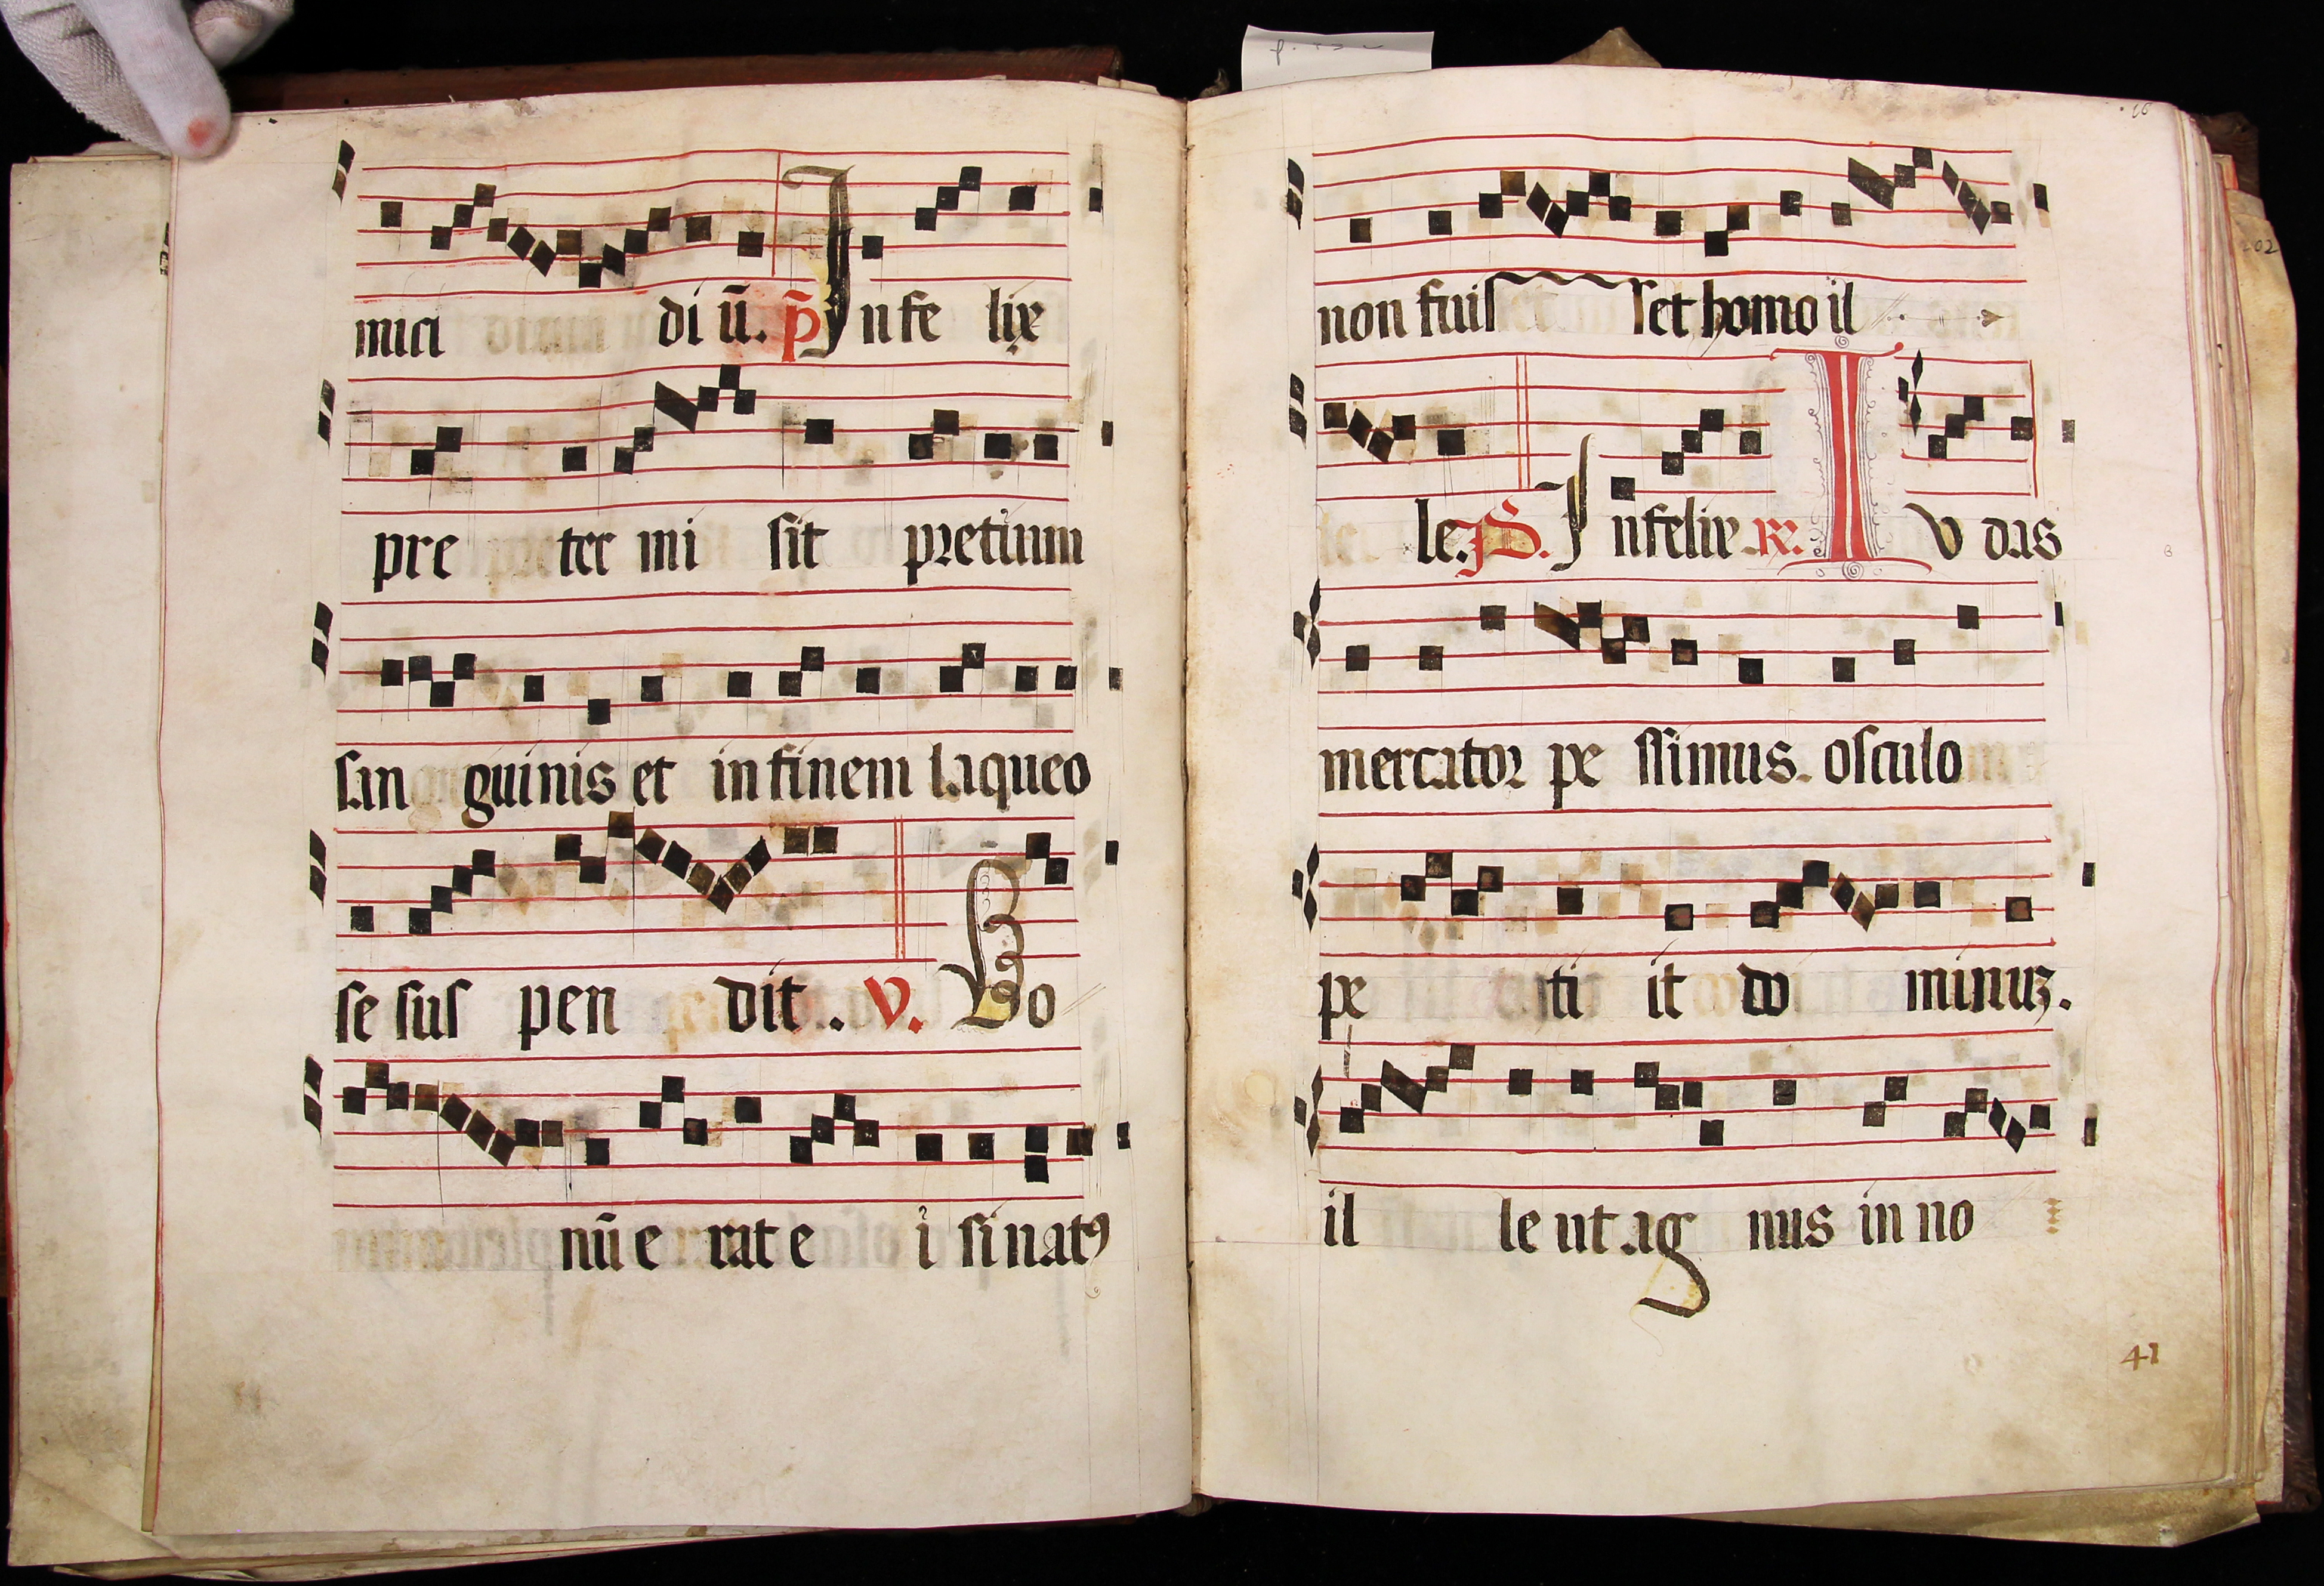 mici di ū. p̄ Infe lix
pre ter mi sit pretium
san guinis et in finem laqueo
se sus pen dit.. V. Bo
nū e rat e i si natꝰ
non fuis set homo il
le. P̄S. Infelix ℟. Iu das
mercator pe ssimus. osculo
pe ti it do minuꝫ.
il le ut ag nus in no
41